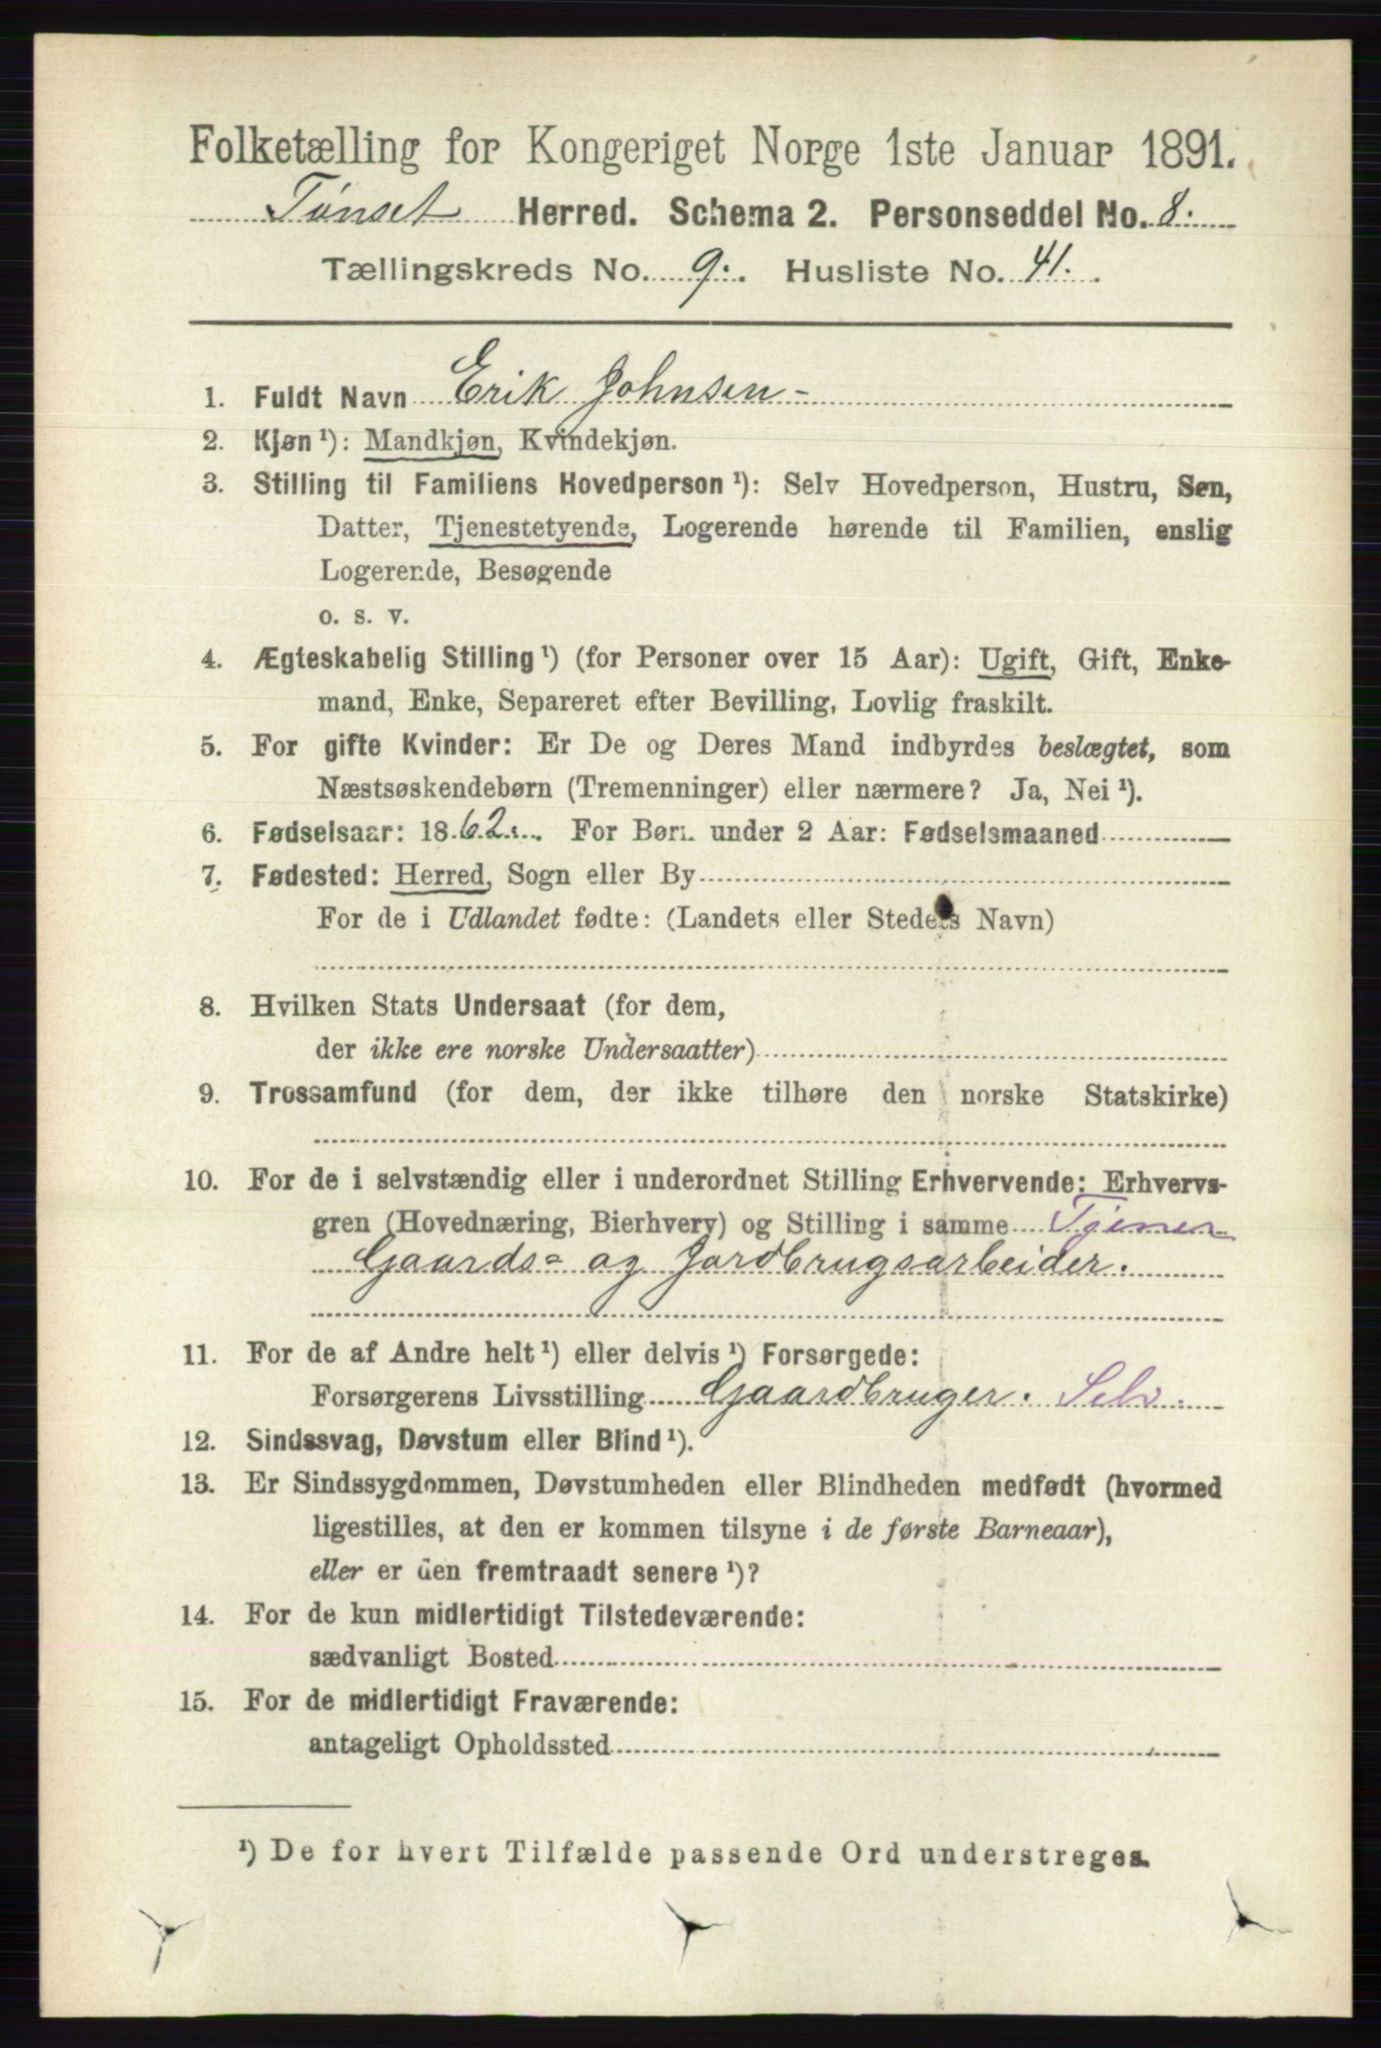 Folketælling for Kongeriget Norge 1ste Januar 1891.
Tønset Herred. Schema 2. Personseddel No. 8.
Tællingskreds No. 9. Husliste No. 41.
1. Fuldt Navn Erik Johnsen
2. Kjøn ¹): Mandkjøn, Kvindekjøn.
3. Stilling til Familiens Hovedperson ¹): Selv Hovedperson, Hustru, Søn,
Datter, Tjenestetyende, Logerende hørende til Familien, enslig
Logerende, Besøgende
o. s. v.
4. Ægteskabelig Stilling ¹) (for Personer over 15 Aar): Ugift, Gift, Enke-
mand, Enke, Separeret efter Bevilling, Lovlig fraskilt.
5. For gifte Kvinder: Er De og Deres Mand indbyrdes beslægtet, som
Næstsøskendebørn (Tremenninger) eller nærmere? Ja, Nei ¹).
6. Fødselsaar: 1862. For Børn under 2 Aar: Fødselsmaaned
7. Fødested: Herred, Sogn eller By
For de i Udlandet fødte: (Landets eller Stedets Navn)
8. Hvilken Stats Undersaat (for dem,
der ikke ere norske Undersaatter)
9. Trossamfund (for dem, der ikke tilhøre den norske Statskirke)
10. For de i selvstændig eller i underordnet Stilling Erhvervende: Erhvervs-
gren (Hovednæring, Bierhverv) og Stilling i samme Tjener
Gaards- og Jordbrugsarbeider.
11. For de af Andre helt ¹) eller delvis ¹) Forsørgede:
Forsørgerens Livsstilling Gaardbruger. Selv.
12. Sindssvag, Døvstum eller Blind ¹).
13. Er Sindssygdommen, Døvstumheden eller Blindheden medfødt (hvormed
ligestilles, at den er kommen tilsyne i de første Barneaar),
eller er den fremtraadt senere ¹)?
14. For de kun midlertidigt Tilstedeværende:
sædvanligt Bosted
15. For de midlertidigt Fraværende:
antageligt Opholdssted
¹) De for hvert Tilfælde passende Ord understreges.